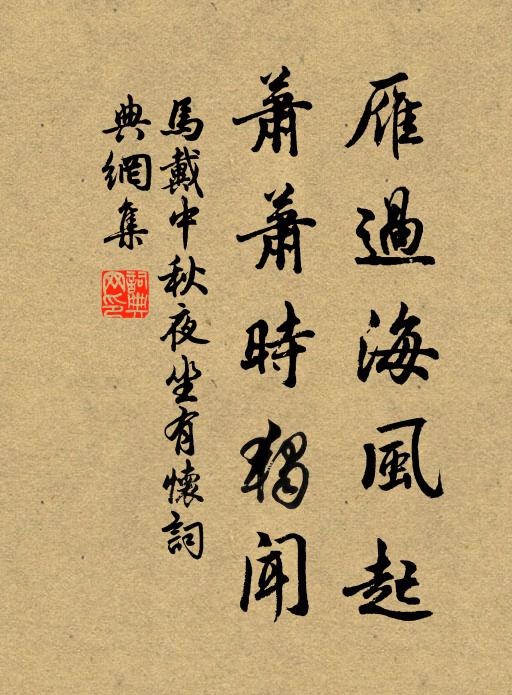 雁過海風起
蕭蕭時獨聞
馬戴中秋夜坐有懷詞
典網集
詞典
网印